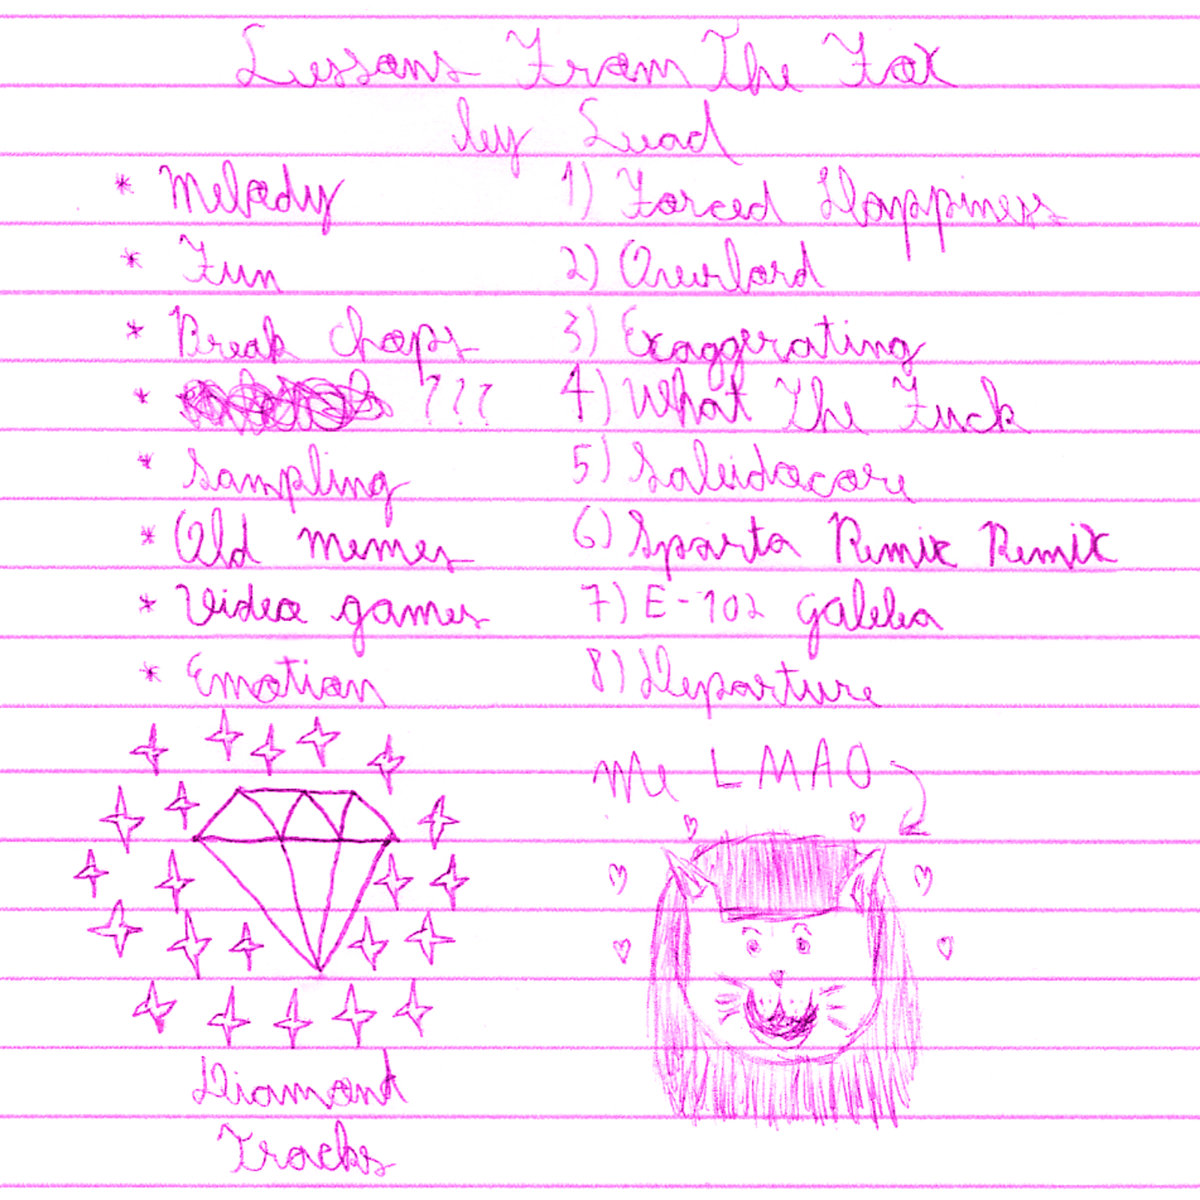 Lessons From The Fox
by Lead
* Melody
* Fun
* Break chops
* ???
* Sampling
* Old memes
* Video games
* Emotion
1) Forced Happiness
2) Overlord
3) Exaggerating
4) What The Fuck
5) Saleidocore
6) Sparta Remix Remix
7) E-102
8) Departure
me LMAO
Diamond
Tracks